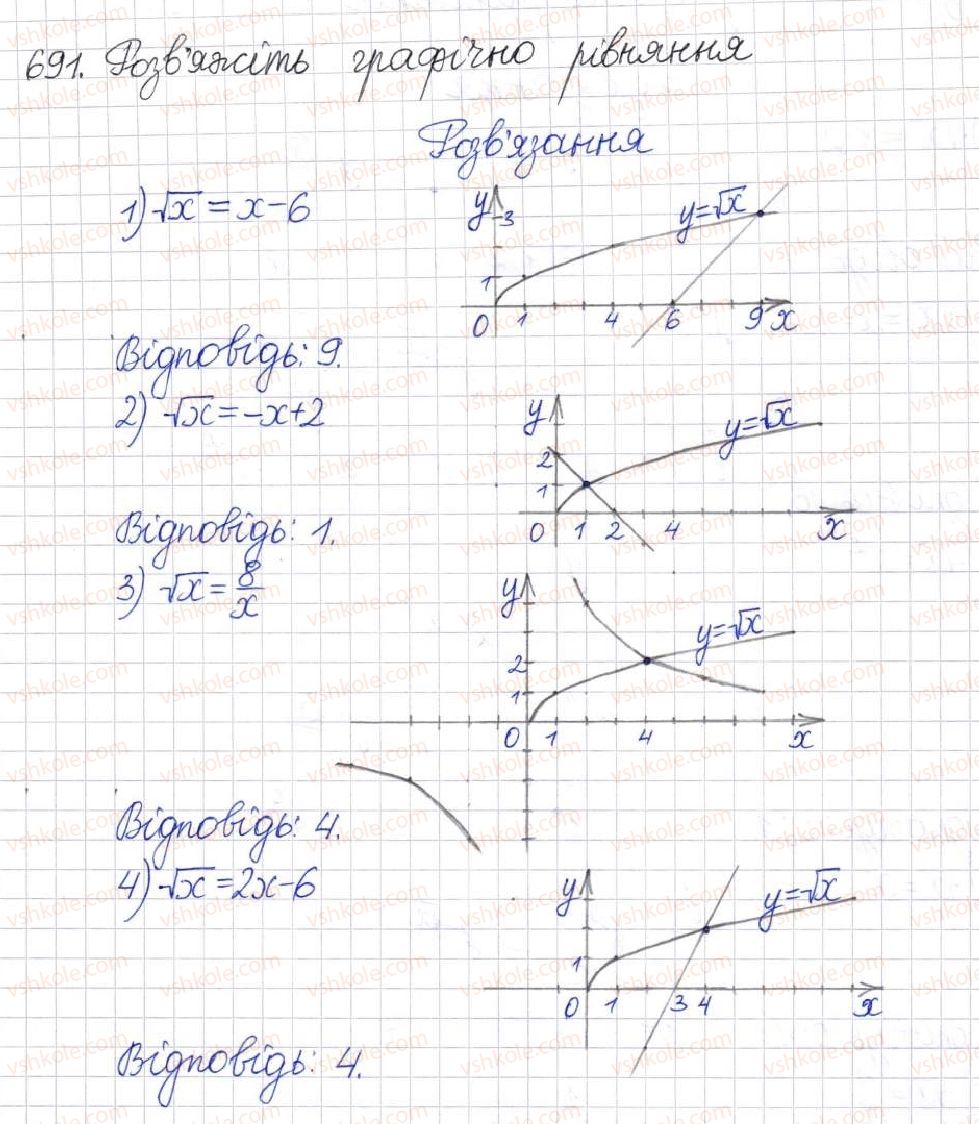 691. Розв'яжіть графічно рівняння
Розв'язання
1) √x = x - 6
y
3
1
0 1 4 6 9 x
y=√x
Відповідь: 9.
2) √x = -x+2
y
2
1
0 1 2 4 x
y=√x
Відповідь: 1.
3) √x = 8/x
y
2
1
0 1 4 x
y=√x
Відповідь: 4.
4) √x = 2x-6
y
1
0 1 3 4 x
y=√x
Відповідь: 4.
vshkole.com